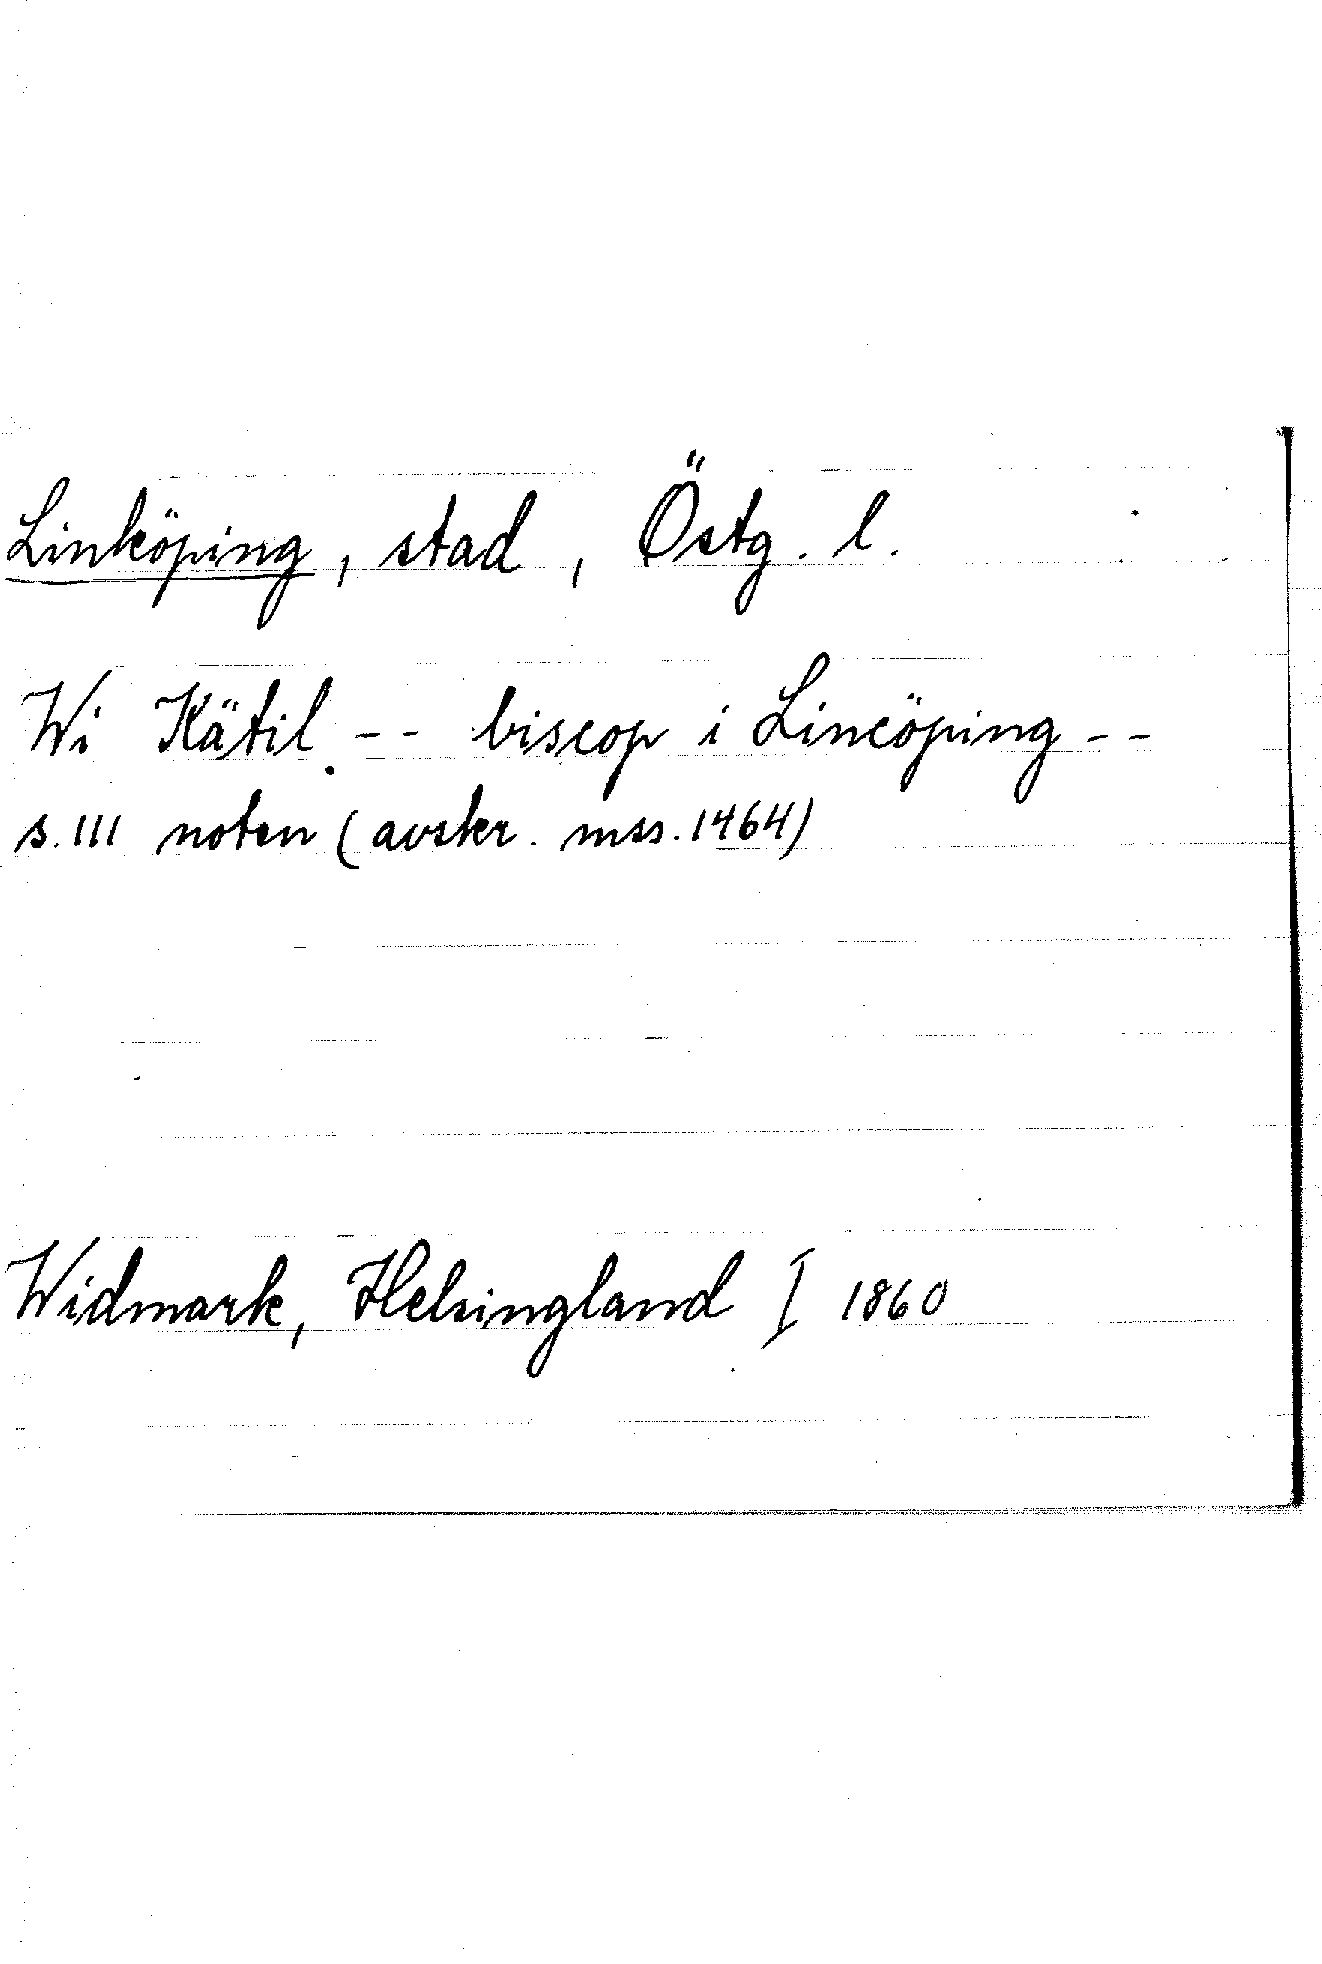 Linköping, stad, Östg. l.
Wi Kätil. -- biscop i Lincöping --
s. 111 noten (avskr. mss. 1464)
Widmark, Helsingland I 1860